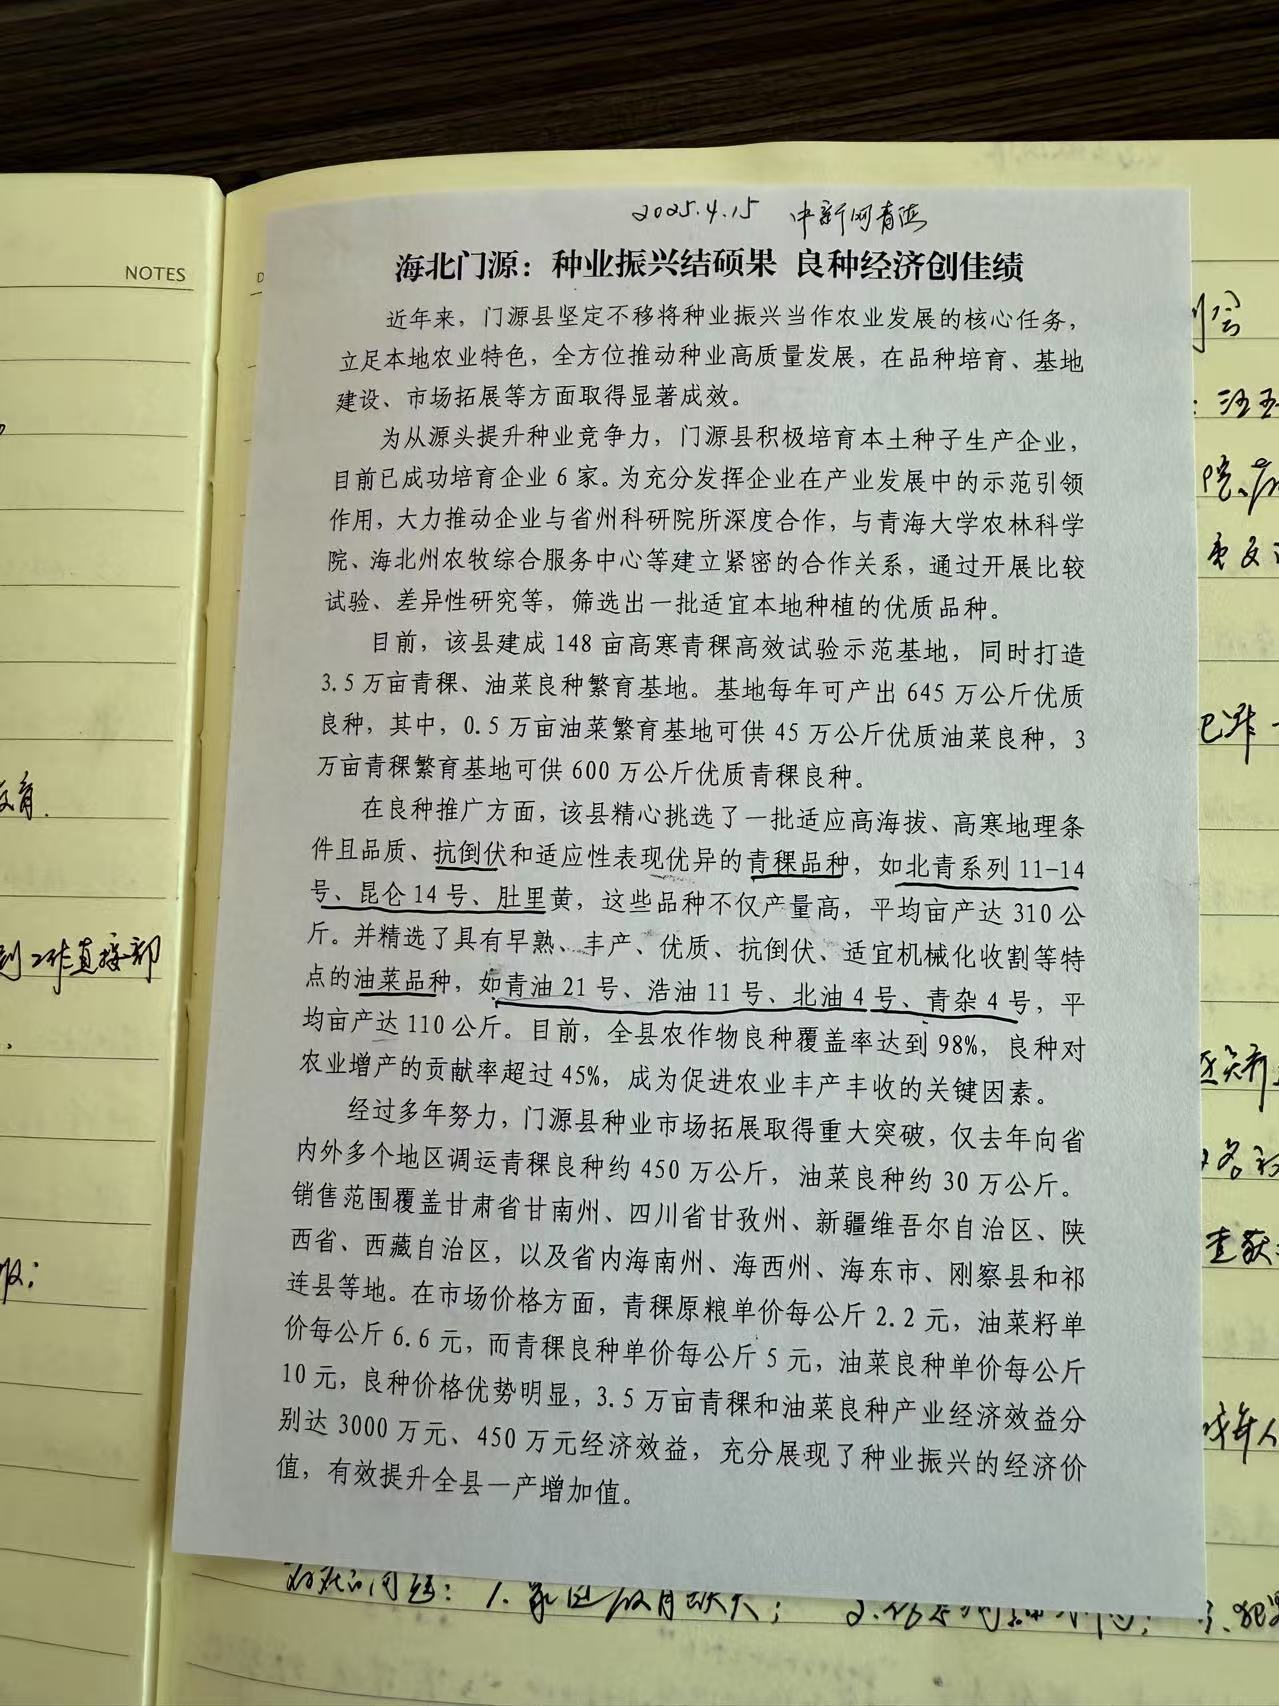 NOTES
2025.4.15 中新网青海
海北门源：种业振兴结硕果 良种经济创佳绩
近年来，门源县坚定不移将种业振兴当作农业发展的核心任务，
立足本地农业特色，全方位推动种业高质量发展，在品种培育、基地
建设、市场拓展等方面取得显著成效。
为从源头提升种业竞争力，门源县积极培育本土种子生产企业，
目前已成功培育企业 6 家。为充分发挥企业在产业发展中的示范引领
作用，大力推动企业与省州科研院所深度合作，与青海大学农林科学
院、海北州农牧综合服务中心等建立紧密的合作关系，通过开展比较
试验、差异性研究等，筛选出一批适宜本地种植的优质品种。
目前，该县建成 148 亩高寒青稞高效试验示范基地，同时打造
3.5 万亩青稞、油菜良种繁育基地。基地每年可产出 645 万公斤优质
良种，其中，0.5 万亩油菜繁育基地可供 45 万公斤优质油菜良种，3
万亩青稞繁育基地可供 600 万公斤优质青稞良种。
在良种推广方面，该县精心挑选了一批适应高海拔、高寒地理条
件且品质、抗倒伏和适应性表现优异的青稞品种，如北青系列 11-14
号、昆仑 14 号、肚里黄，这些品种不仅产量高，平均亩产达 310 公
斤。并精选了具有早熟、丰产、优质、抗倒伏、适宜机械化收割等特
点的油菜品种，如青油 21 号、浩油 11 号、北油 4 号、青杂 4 号，平
均亩产达 110 公斤。目前，全县农作物良种覆盖率达到 98%，良种对
农业增产的贡献率超过 45%，成为促进农业丰产丰收的关键因素。
经过多年努力，门源县种业市场拓展取得重大突破，仅去年向省
内外多个地区调运青稞良种约 450 万公斤，油菜良种约 30 万公斤。
销售范围覆盖甘肃省甘南州、四川省甘孜州、新疆维吾尔自治区、陕
西省、西藏自治区，以及省内海南州、海西州、海东市、刚察县和祁
连县等地。在市场价格方面，青稞原粮单价每公斤 2.2 元，油菜籽单
价每公斤 6.6 元，而青稞良种单价每公斤 5 元，油菜良种单价每公斤
10 元，良种价格优势明显，3.5 万亩青稞和油菜良种产业经济效益分
别达 3000 万元、450 万元经济效益，充分展现了种业振兴的经济价
值，有效提升全县一产增加值。